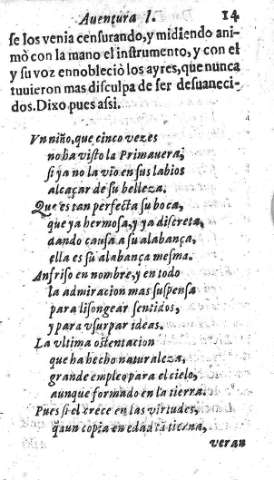 Auentura I. 14
se los venia censurando, y midiendo ani-
mò con la mano el instrumento, y con el
y su voz ennobleciò los ayres, que nunca
tuuieron mas disculpa de ser desuaneci-
dos. Dixo pues assi.
Vn niño, que cinco vezes
no ha visto la Primauera,
si ya no la vio en sus labios
alcaçar de su belleza.
Que es tan perfecta su boca,
que ya hermosa, y ya discreta,
dando causa a su alabança,
ella es su alabança mesma.
Anfriso en nombre, y en todo
la admiracion mas suspensa
para lisongear sentidos,
y para vsurpar ideas.
La vltima ostentacion
que ha hecho naturaleza,
grande empleo para el cielo,
aunque formado en la tierra.
Pues si el crece en las virtudes,
q̃ aun copia en edad tã tierna,
veran